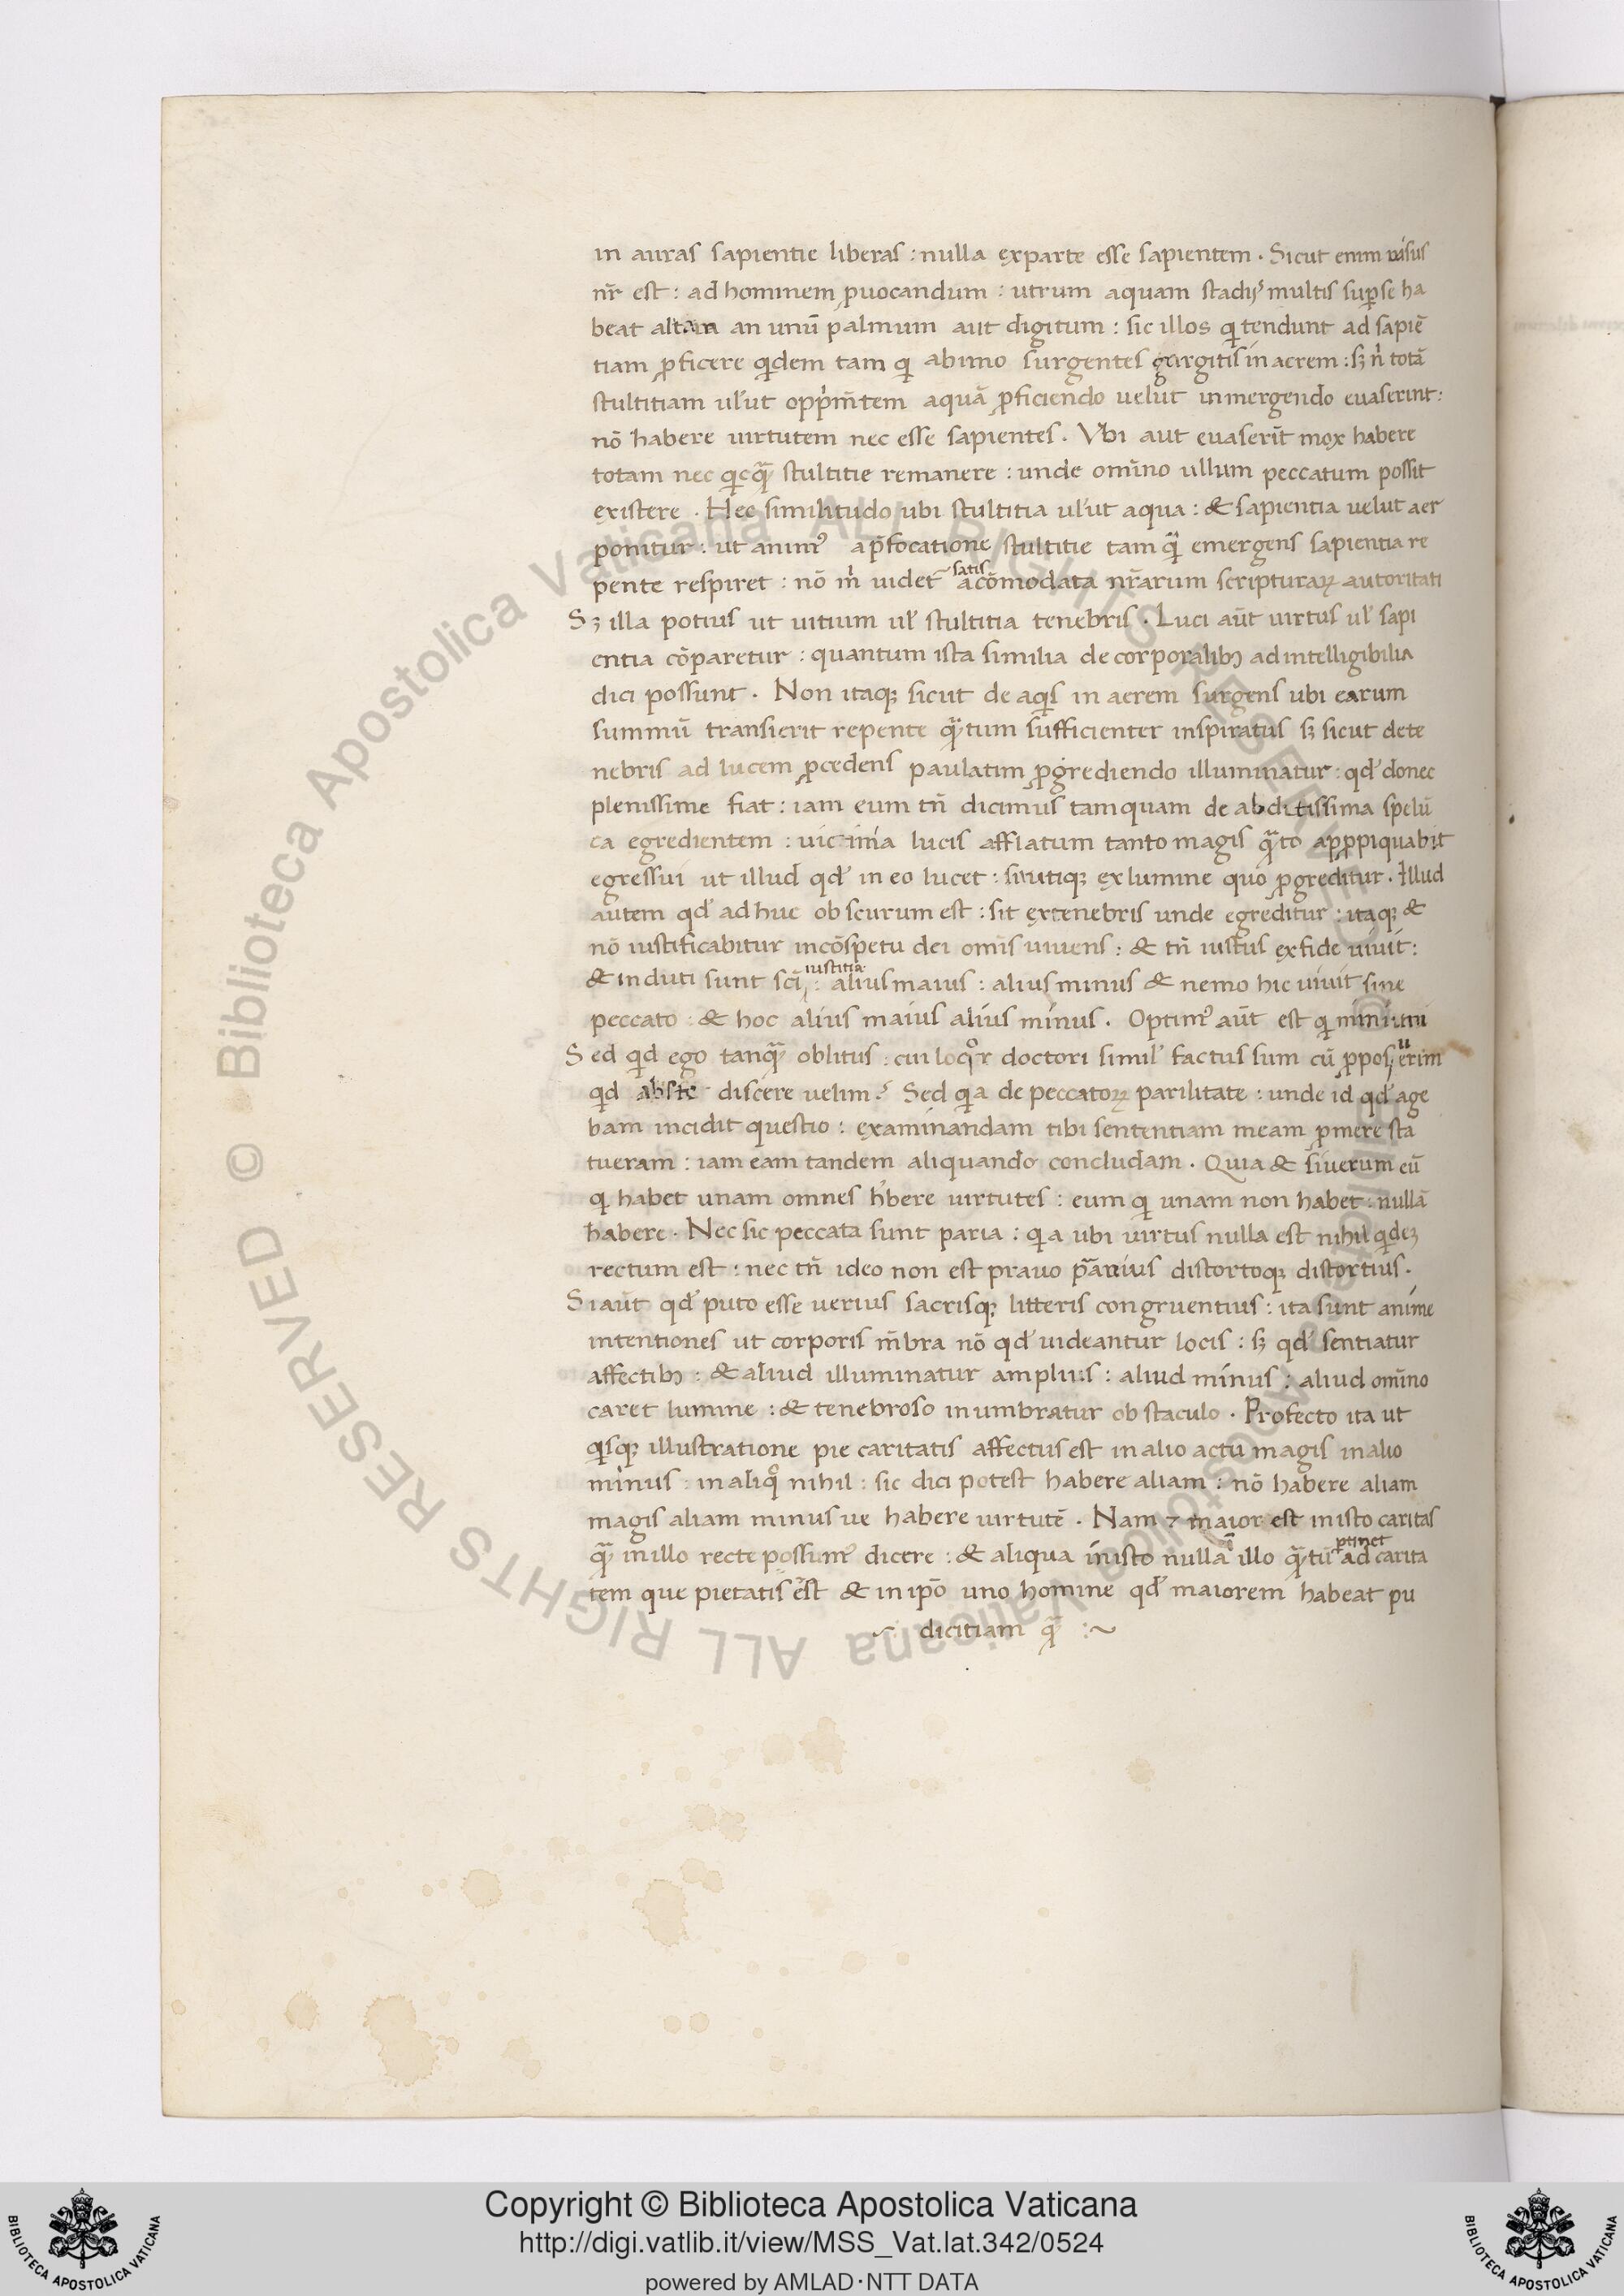 in auras sapientie liberas : nulla exparte esse sapientem . Sicut enim
nr̄ est : ad hominem ꝓuocandum : utrum aquam stadijs multis suꝑse ha
beat altam an unū palmum aut digitum : sic illos qi tendunt ad sapiē
tiam ꝓficere qidem tam qi abimo surgentes gurgitis in aerem : sꝫ ni totā
stultitiam ul'ut oppͥm̄tem aquā ꝓficiendo uelut inmergendo euaserint :
nō habere uirtutem nec esse sapientes . Vbi aut euaserīt mox habere
totam nec qicq̄ stultitie remanere : unde omīno ullum peccatum possit
existere . Hec similitudo ubi stultitia ul'ut aqua : & sapientia uelut aer
ponitur : ut animꝰ a p̄focatione stultitie tam q̄ emergens sapientia re
pente respiret : nō mͥ uidet᷑ satis acōmodata nr̄arum scripturaꝝ autoritati
Sꝫ illa potius ut uitium ul' stultitia tenebris . Luci aūt uirtus ul' sapi
entia cōparetur : quantum ista similia de corporalibꝫ ad intelligibilia
dici possunt . Non itaqꝫ sicut de aqis in aerem surgens ubi earum
summū transierit repente q̄tum sufficienter inspiratus sꝫ sicut dete
nebris ad lucem ꝓcedens paulatim ꝓgrediendo illuminatur : qd' donec
plenissime fiat : iam eum tn̄ dicimus tamquam de abditissima spelū
ca egredientem : uicinia lucis afflatum tanto magis q̄to apꝓpiquabit
egressui ut illud qd' in eo lucet : sit utiqꝫ ex lumine quo ꝓgreditur . Illud
autem qd' ad huc ob scurum est : sit ex tenebris unde egreditur : itaqꝫ &
nō iustificabitur incōspetu dei omīs uiuens : & tn̄ iustus exfide uiuit :
& induti sunt scī iustitia : alius maius : alius minus & nemo hic uiuit sine
peccato : & hoc alius maius alius minus . Optimꝰ aūt est qi
Sed qid ego tanq̄ oblitus : cui loqͦr doctori simil' factus sum cū ꝓposuerim
qid abste discere uelim ? Sed qia de peccatoꝝ parilitate : unde id qd' age
bam incidit questio : examinandam tibi sententiam meam ꝓmere sta
tueram : iam eam tandem aliquando concludam . Quia & si uerum eū
qi habet unam omnes h'bere uirtutes : eum qi unam non habet : nullā
habere . Nec sic peccata sunt paria : qi a ubi uirtus nulla est nihil qideꝫ
rectum est : nec tn̄ ideo non est prauo distortoqꝫ distortius .
Si aūt qd' puto esse uerius sacrisqꝫ litteris congruentius : ita sunt anime
intentiones ut corporis m̄bra nō qd' uideantur locis : sꝫ qd' sentiatur
affectibꝫ : & aliud illuminatur amplius : aliud minus : aliud omīno
caret lumine : & tenebroso inumbratur ob staculo . Profecto ita ut
qisqꝫ illustratione pie caritatis affectus est in alio actu magis in alio
minus : in aliqͦ nihil : sic dici potest habere aliam : nō habere aliam
magis aliam minus ue habere uirtutē . Nam ⁊ maior est in isto caritas
q̄ in illo recte possumꝰ dicere : & aliqua in isto nulla ī illo q̄tū ꝑtinet ad carita
tem que pietatis est & in ip̄o uno homine qd' maiorem habeat pu
~ dicitiam q̄ :~
Copyright © Biblioteca Apostolica Vaticana
http://digi.vatlib.it/view/MSS_Vat.lat.342/0524
powered by AMLAD·NTT DATA
BIBLIOTECA APOSTOLICA VATICANA
BIBLIOTECA APOSTOLICA VATICANA
© Biblioteca Apostolica Vaticana ALL RIGHTS RESERVED
© Biblioteca Apostolica Vaticana ALL RIGHTS RESERVED